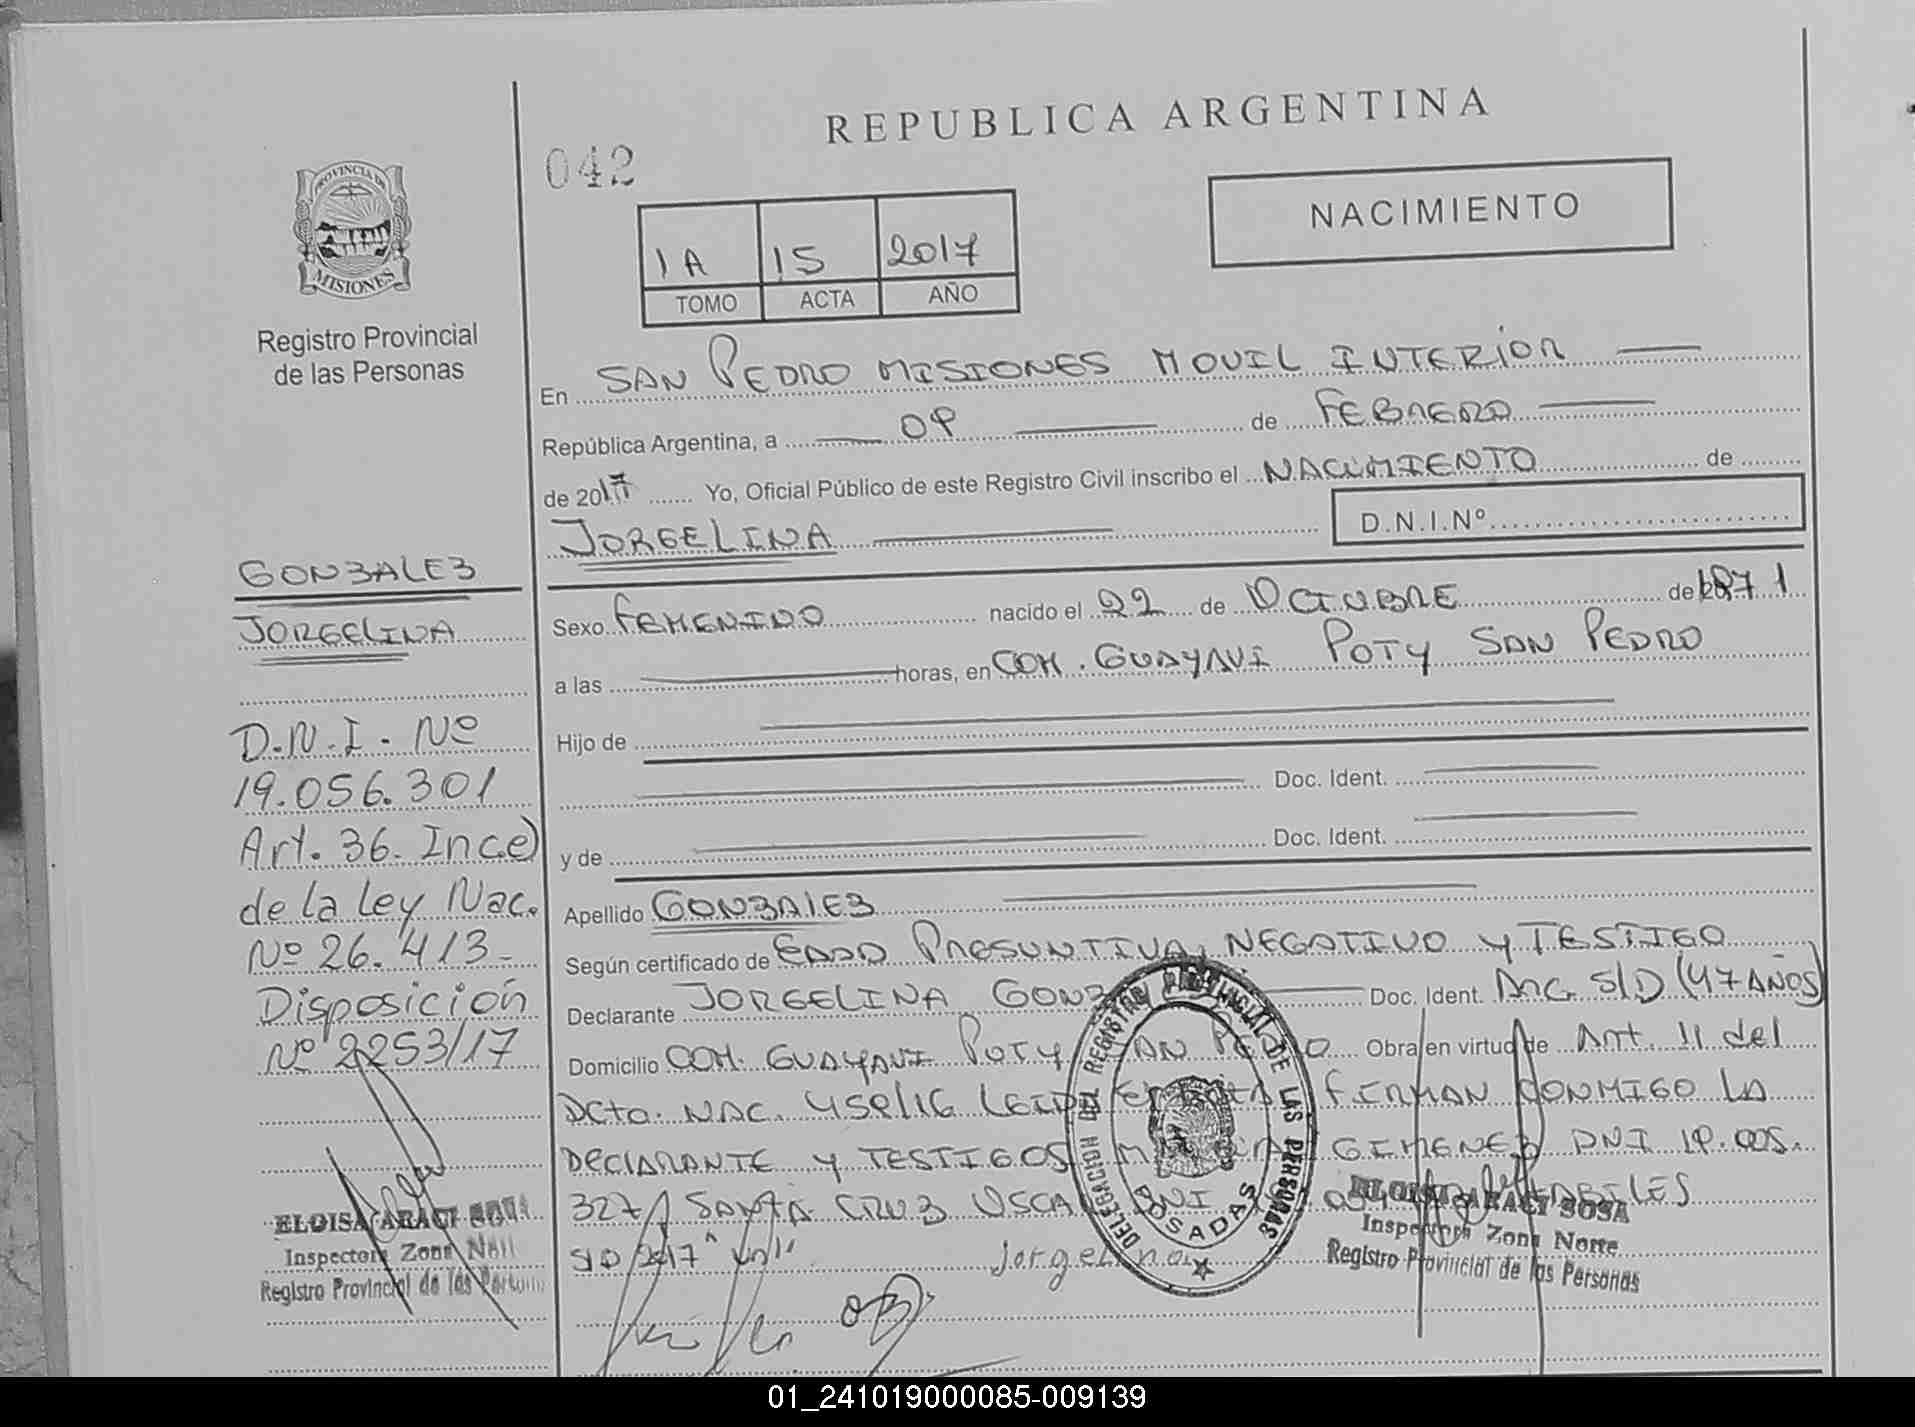 REPUBLICA ARGENTINA
042
NACIMIENTO
1A 15 2017
TOMO ACTA AÑO
PROVINCIA DE
MISIONES
Registro Provincial
de las Personas
En SAN PEDRO MISIONES MOVIL INTERIOR
República Argentina, a 09 de FEBRERO
de 2017 Yo, Oficial Público de este Registro Civil inscribo el NACIMIENTO de
JORGELINA D.N.I.Nº
GONZALEZ
JORGELINA
D.N.I. Nº
19.056.301
Art. 36. Inc e)
de la Ley Nac.
Nº 26.413-
Disposición
Nº 2253/17
ELOISA ARACI SOSA
Inspectora Zona
Registro Provincial de las
Sexo FEMENINO nacido el 22 de OCTUBRE de 1
a las horas, en COM. GUAYAVI POTY SAN PEDRO
Hijo de
Doc. Ident.
y de Doc. Ident.
Apellido GONZALEZ
Según certificado de EDAD PRESUNTIVA, NEGATIVO y TESTIGO
Declarante JORGELINA Doc. Ident. ARG. S/D (47 AÑOS)
Domicilio COM. GUAYAVI POTY SAN PEDRO Obra en virtud de Art. 11 del
Dcto. NAC. FIRMAN CONMIGO LA
DECLARANTE y TESTIGOS GIMENEZ DNI 19.005.
327 SANTA CRUZ DNI
S/D 2017
Jorgelina
DELEGACION DEL REGISTRO PROVINCIAL DE LAS PERSONAS
POSADAS
ELOISA ARACI SOSA
Inspectora Zona Norte
Registro Provincial de las Personas
01_241019000085-009139